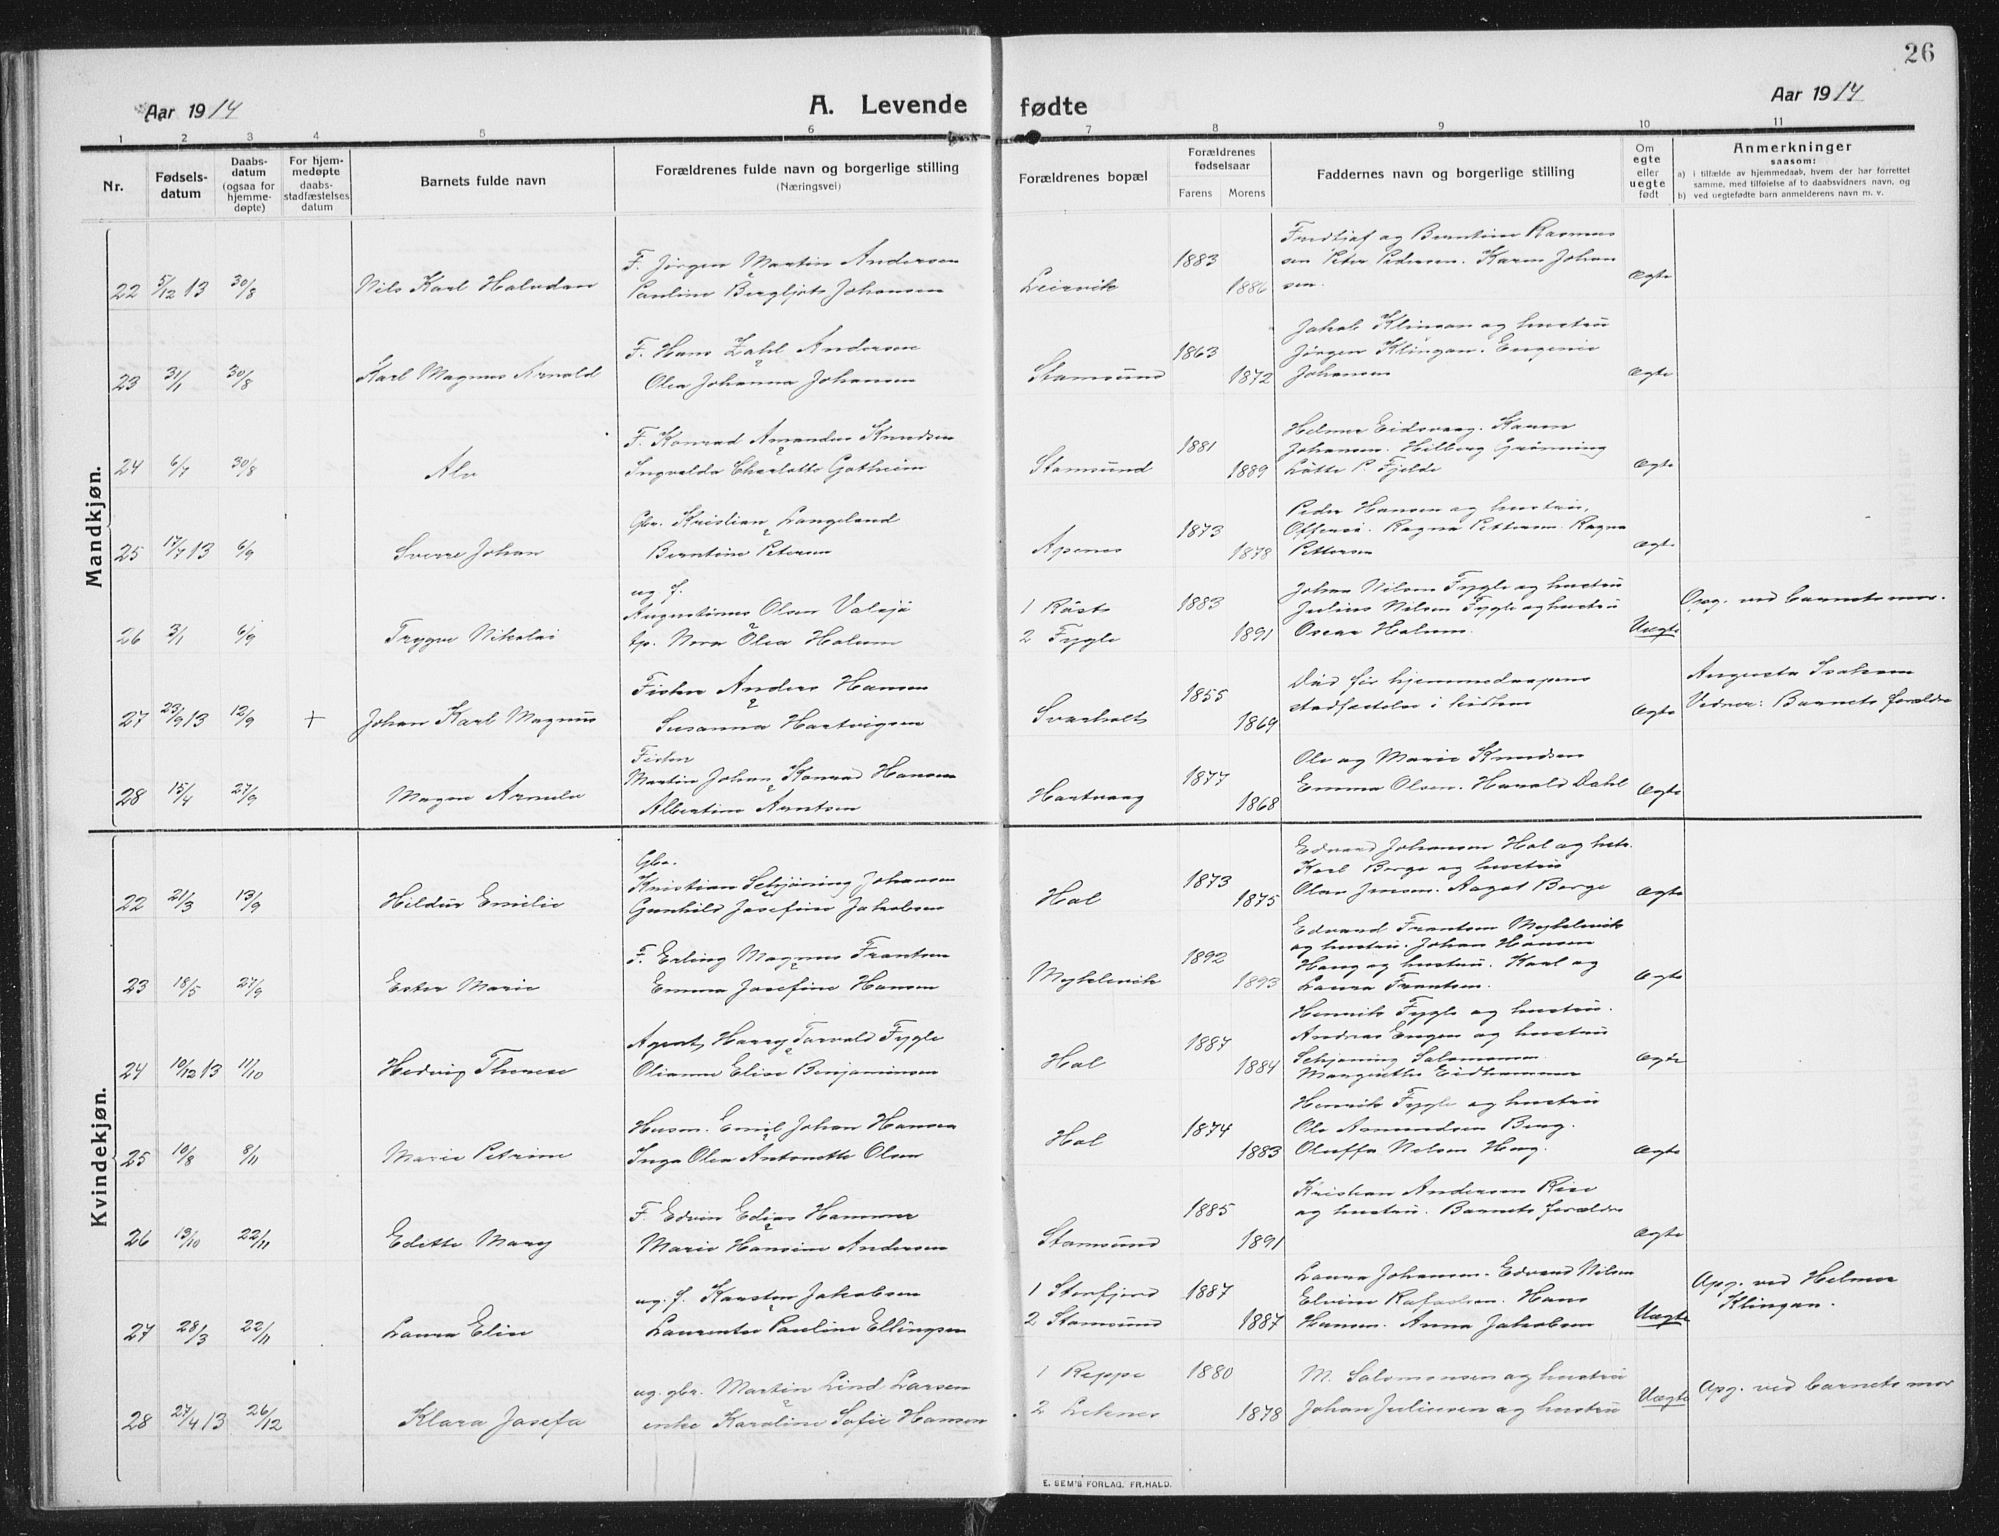 26
Aar 1914
A. Levende fødte
Aar 1914
1 2 3 4 5 6 7 8 9 10 11
Nr.
Fødsels-
datum
Daabs-
datum
(ogsaa for
hjemme-
døpte)
For hjem-
medøpte
daabs-
stadfæstelses
datum
Barnets fulde navn
Forældrenes fulde navn og borgerlige stilling
(Næringsvei)
Forældrenes bopæl
Forældrenes
fødselsaar
Farens Morens
Faddernes navn og borgerlige stilling
Om
egte
eller
uegte
født
Anmerkninger
saasom:
a) i tilfælde av hjemmedaab, hvem der har forrettet
samme, med tilføielse af to daabsvidners navn, og
b) ved uegtefødte barn anmelderens navn m. v.
Mandkjøn.
22 5/12 13 30/8 Nils Karl Halvdan
F. Jørgen Martin Andersen
Pauline Bergljot Johansen
Leirvik 1883 1886
Fredtjof og Berntine Rasmus
sen Peter Pedersen. Karen Johan
sen.
Ægte
23 31/1 30/8 Karl Magnus Arnold
F. Hans Zahl Andersen
Olea Johanna Johansen
Stamsund 1863 1872
Jakob Klingan og hustru
Jørgen Klingan. Eugenie
Johansen
Ægte
24 6/7 30/8 Alv
F. Konrad Amandus Knudsen
Ingvalda Charlotte Gotheim
Stamsund 1881 1889
Helmer Eidsvaag. Karen
Johansen. Hilberg Grønning
Lotte P. Fjelde
Ægte
25 17/7 13 6/9 Sverre Johan
Gbr. Kristian Langeland
Berntine Petersen
Apenes 1873 1878
Peder Hansen og hustru,
Offersø. Ragna Pettersen. Ragna
Pettersen
Ægte
26 3/1 6/9 Trygve Nikolai
ug. f.
Augustinus Olsen Valsjø
tp. Nora Olea Holum
1 Røst
2 Fygle
1883 1891
Johan Nilsen Fygle og hustru
Julius Nilsen Fygle og hustru
Oscar Holum.
Uægte
Opg. ved barnets mor.
27 23/9 13 12/9 + Johan Karl Magnus
Fisker Anders Hansen
Susanna Hartvigsen
Svarholt 1855 1869
Død før hjemmedaapens
stadfæstelse i kirken
Ægte
Augusta Isaksen
Vidner: Barnets forældre
28 15/4 27/9 Magne Arnulv
Fisker
Martin Johan Konrad Hansen
Albertine Arntsen
Hartvaag 1877 1868
Ole og Marie Knudsen
Emma Olsen. Harald Dahl
Ægte
Kvindekjøn.
22 21/3 13/9 Hildur Emilie
Gbr.
Kristian Schjøning Johansen
Gunhild Josefine Jakobsen
Hol 1873 1875
Edvard Johansen Hol og hstr.
Karl Borge og hustru
Olav Jensen. Aagot Borge
Ægte
23 18/5 27/9 Ester Marie
F. Erling Magnus Frantsen
Emma Josefine Hansen
Myklevik 1892 1893
Edvard Frantsen Myklevik
og hustru. Johan Hansen
Haug og hustru. Karl og
Laura Frantsen.
Ægte
24 10/12 13 11/10 Hedvig Therese
Agent Harry Torvald Fygle
Olianne Elise Benjaminsen
Hol 1887 1884
Henrik Fygle og hustru.
Andreas Engen og hustru
Schjøning Salomonsen
Margrethe Eidhammer
Ægte
25 10/8 8/11 Marie Petrine
Husm. Emil Johan Hansen
Inga Olea Antonette Olsen
Hol 1874 1883
Henrik Fygle og hustru
Ole Amundsen Berg.
Oluffa Nilsen Haug.
Ægte
26 13/10 22/11 Edette Mary
F. Edvin Edias Hammer
Marie Hansine Andersen
Stamsund 1885 1891
Kristian Andersen Rise
og hustru. Barnets forældre
Ægte
27 28/3 22/11 Laura Elise
ug. f. Karsten Jakobsen
Laurentse Pauline Ellingsen
1 Storfjord
2 Stamsund
1887 1887
Laura Johansen. Edvard Nilsen
Elvine Rafaelsen. Hans
Hansen. Anna Jakobsen
Uægte
Opg. ved Helmer
Klingan.
28 27/4 13 26/12 Klara Josefa
ug. gbr. Martin Lind Larsen
enke Karoline Sofie Hansen
1 Reppe
2 Leknes
1880 1878
M. Salomonsen og hustru
Johan Juliussen og hustru
Uægte
Opg. ved barnets mor
E. SEM'S FORLAG, FR.HALD.